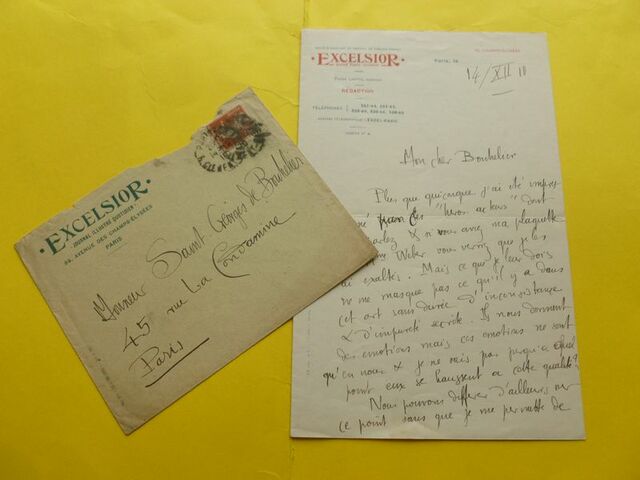 EXCELSIOR
JOURNAL ILLUSTRÉ QUOTIDIEN
88, AVENUE DES CHAMPS-ÉLYSÉES
PARIS
Monsieur Saint Georges de Bouhélier
45 rue La Condamine
Paris
EXCELSIOR
RÉDACTION
TÉLÉPHONES
Paris, le
14/XII 10
Mon cher Bouhelier
Plus que quiconque j'ai été impres-
sionné par les "heros acteurs" dont
parlez & si vous avez ma plaquette
Weber vous verrez que je les
ai exaltés. Mais ce que je leur dois
ne me masque pas ce qu'il y a dans
cet art sans durée d'inconsistance
& d'impureté secrète. Ils nous donnent
des émotions mais ces émotions ne sont
qu'en nous & je ne sais pas jusqu'à quel
point eux se haussent à cette qualité?
Nous pouvons différer d'ailleurs sur
ce point sans que je me permette de